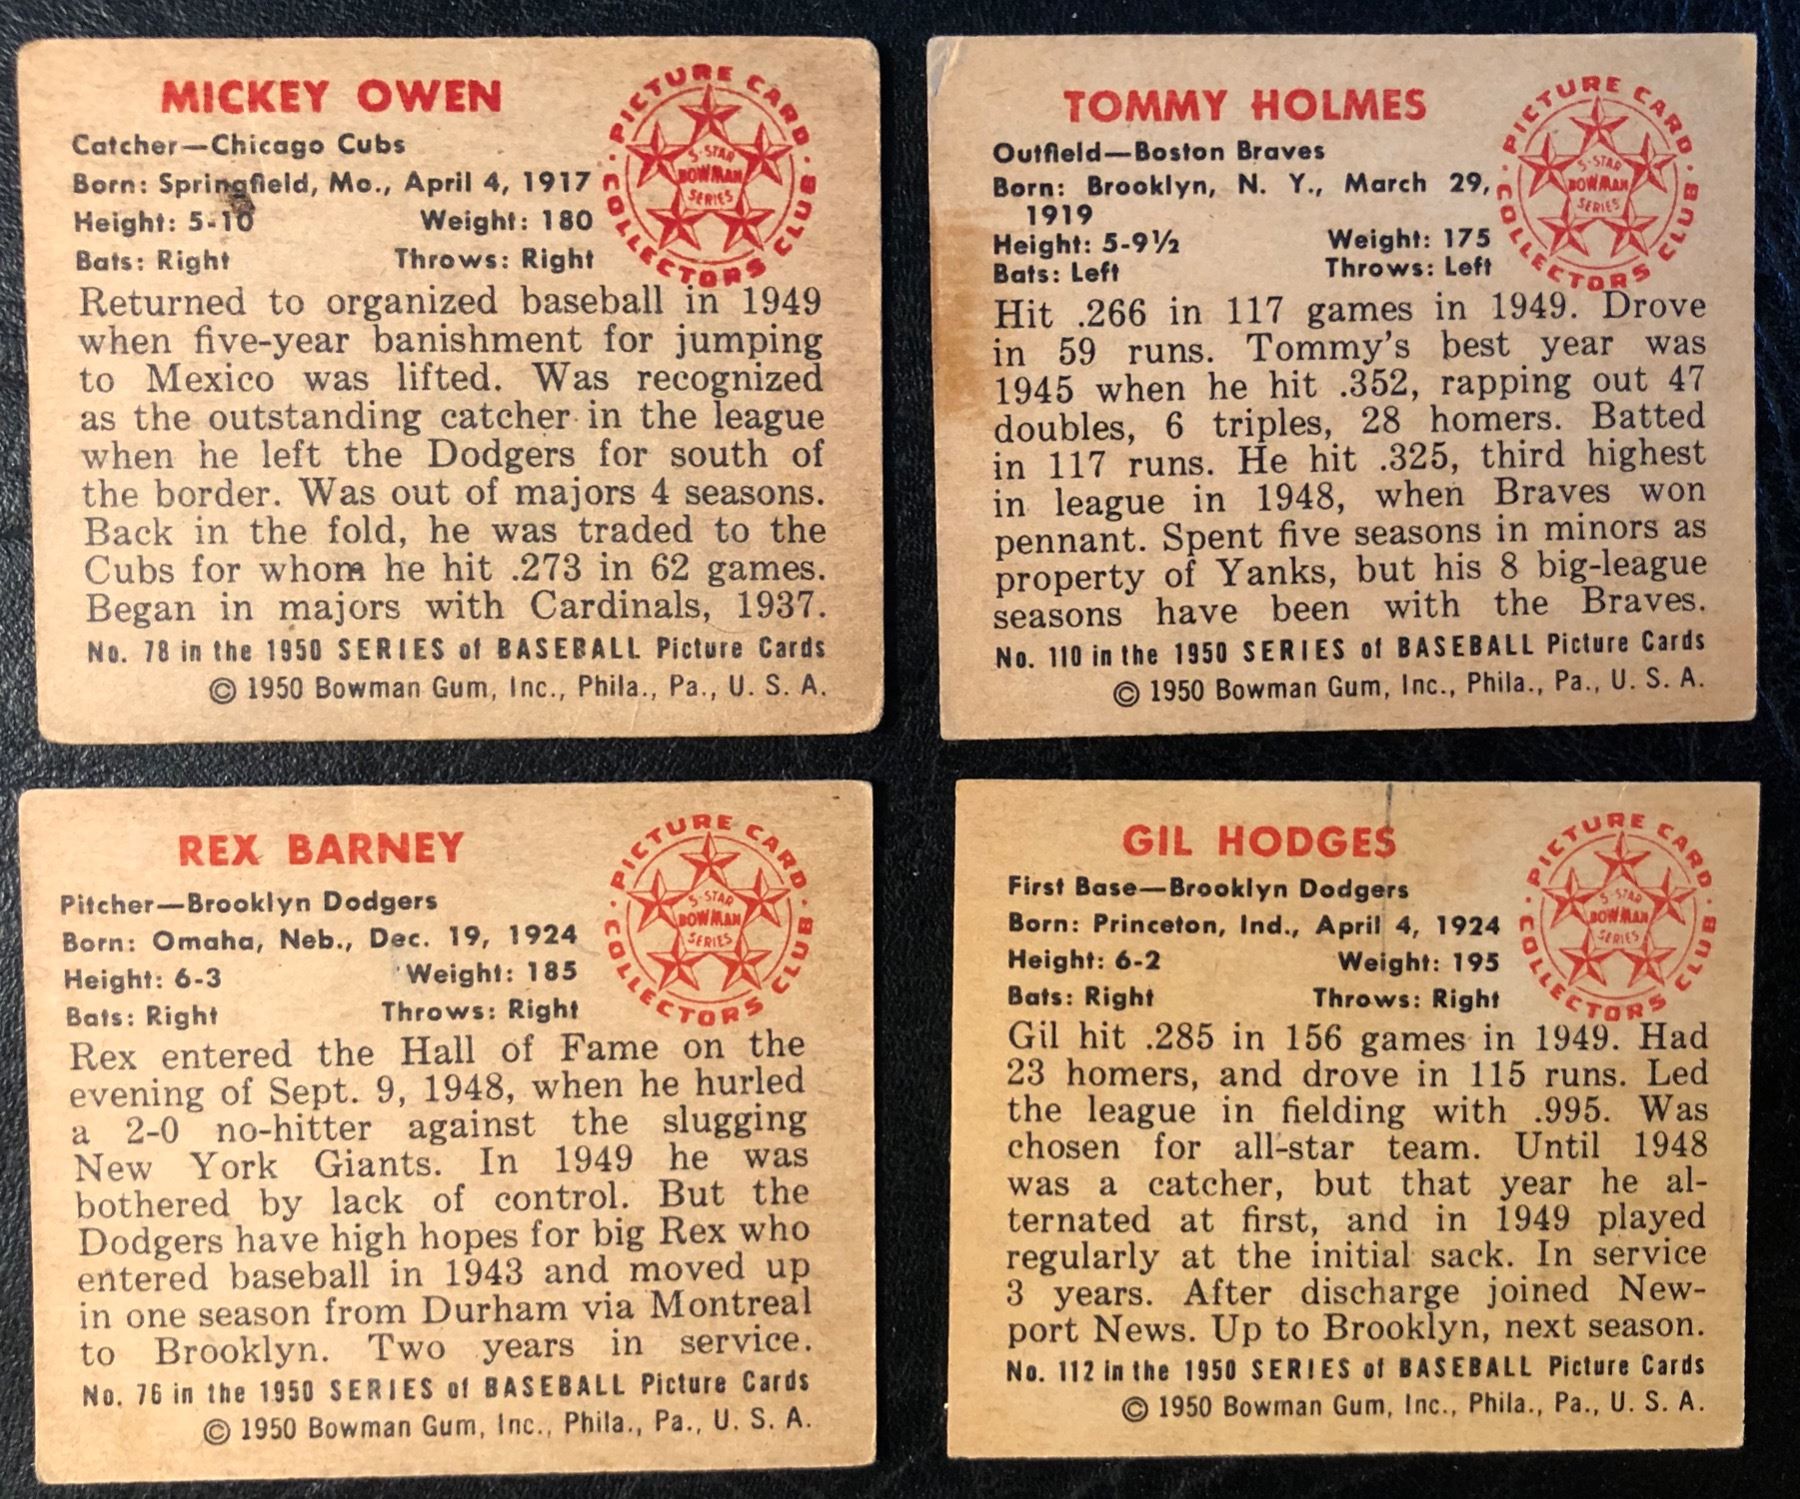 MICKEY OWEN
Catcher—Chicago Cubs
Born: Springfield, Mo., April 4, 1917
Height: 5-10 Weight: 180
Bats: Right Throws: Right
PICTURE CARD COLLECTORS CLUB
5-STAR
BOWMAN
SERIES
Returned to organized baseball in 1949
when five-year banishment for jumping
to Mexico was lifted. Was recognized
as the outstanding catcher in the league
when he left the Dodgers for south of
the border. Was out of majors 4 seasons.
Back in the fold, he was traded to the
Cubs for whom he hit .273 in 62 games.
Began in majors with Cardinals, 1937.
No. 78 in the 1950 SERIES of BASEBALL Picture Cards
© 1950 Bowman Gum, Inc., Phila., Pa., U. S. A.
TOMMY HOLMES
Outfield—Boston Braves
Born: Brooklyn, N. Y., March 29,
1919
Height: 5-9½ Weight: 175
Bats: Left Throws: Left
PICTURE CARD COLLECTORS CLUB
5-STAR
BOWMAN
SERIES
Hit .266 in 117 games in 1949. Drove
in 59 runs. Tommy's best year was
1945 when he hit .352, rapping out 47
doubles, 6 triples, 28 homers. Batted
in 117 runs. He hit .325, third highest
in league in 1948, when Braves won
pennant. Spent five seasons in minors as
property of Yanks, but his 8 big-league
seasons have been with the Braves.
No. 110 in the 1950 SERIES of BASEBALL Picture Cards
© 1950 Bowman Gum, Inc., Phila., Pa., U. S. A.
REX BARNEY
Pitcher—Brooklyn Dodgers
Born: Omaha, Neb., Dec. 19, 1924
Height: 6-3 Weight: 185
Bats: Right Throws: Right
PICTURE CARD COLLECTORS CLUB
5-STAR
BOWMAN
SERIES
Rex entered the Hall of Fame on the
evening of Sept. 9, 1948, when he hurled
a 2-0 no-hitter against the slugging
New York Giants. In 1949 he was
bothered by lack of control. But the
Dodgers have high hopes for big Rex who
entered baseball in 1943 and moved up
in one season from Durham via Montreal
to Brooklyn. Two years in service.
No. 76 in the 1950 SERIES of BASEBALL Picture Cards
© 1950 Bowman Gum, Inc., Phila., Pa., U. S. A.
GIL HODGES
First Base—Brooklyn Dodgers
Born: Princeton, Ind., April 4, 1924
Height: 6-2 Weight: 195
Bats: Right Throws: Right
PICTURE CARD COLLECTORS CLUB
5-STAR
BOWMAN
SERIES
Gil hit .285 in 156 games in 1949. Had
23 homers, and drove in 115 runs. Led
the league in fielding with .995. Was
chosen for all-star team. Until 1948
was a catcher, but that year he al-
ternated at first, and in 1949 played
regularly at the initial sack. In service
3 years. After discharge joined New-
port News. Up to Brooklyn, next season.
No. 112 in the 1950 SERIES of BASEBALL Picture Cards
© 1950 Bowman Gum, Inc., Phila., Pa., U. S. A.